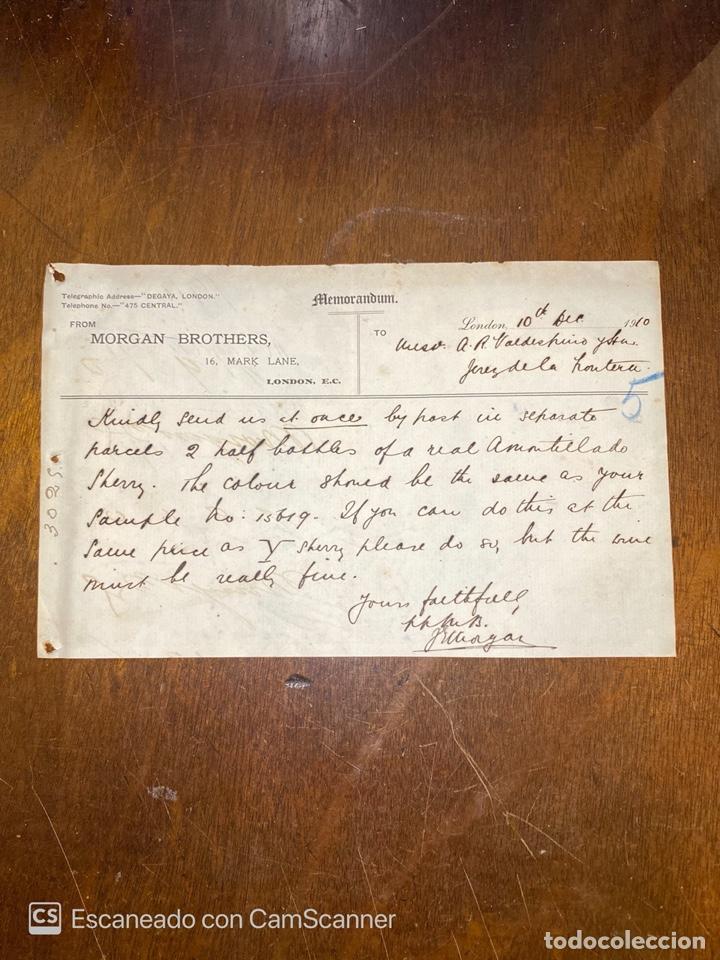 Telegraphic Address—"DEGAYA, LONDON."
Telephone No.—"475 CENTRAL."
Memorandum.
FROM
MORGAN BROTHERS,
16, MARK LANE,
LONDON. E.C.
London, 10th Dec 1910
TO
Messrs. A. R. Valdespino y Hno.
Jerez de la Frontera.
5
Kindly send us at once by post in separate
parcels 2 half bottles of a real Amontillado
Sherry. The colour should be the same as your
Sample No: 15619. If you can do this at the
same price as Y sherry please do so, but the wine
must be really fine.
Yours faithfully
pp M.B.
Morgan
3025.
CS Escaneado con CamScanner
todocoleccion